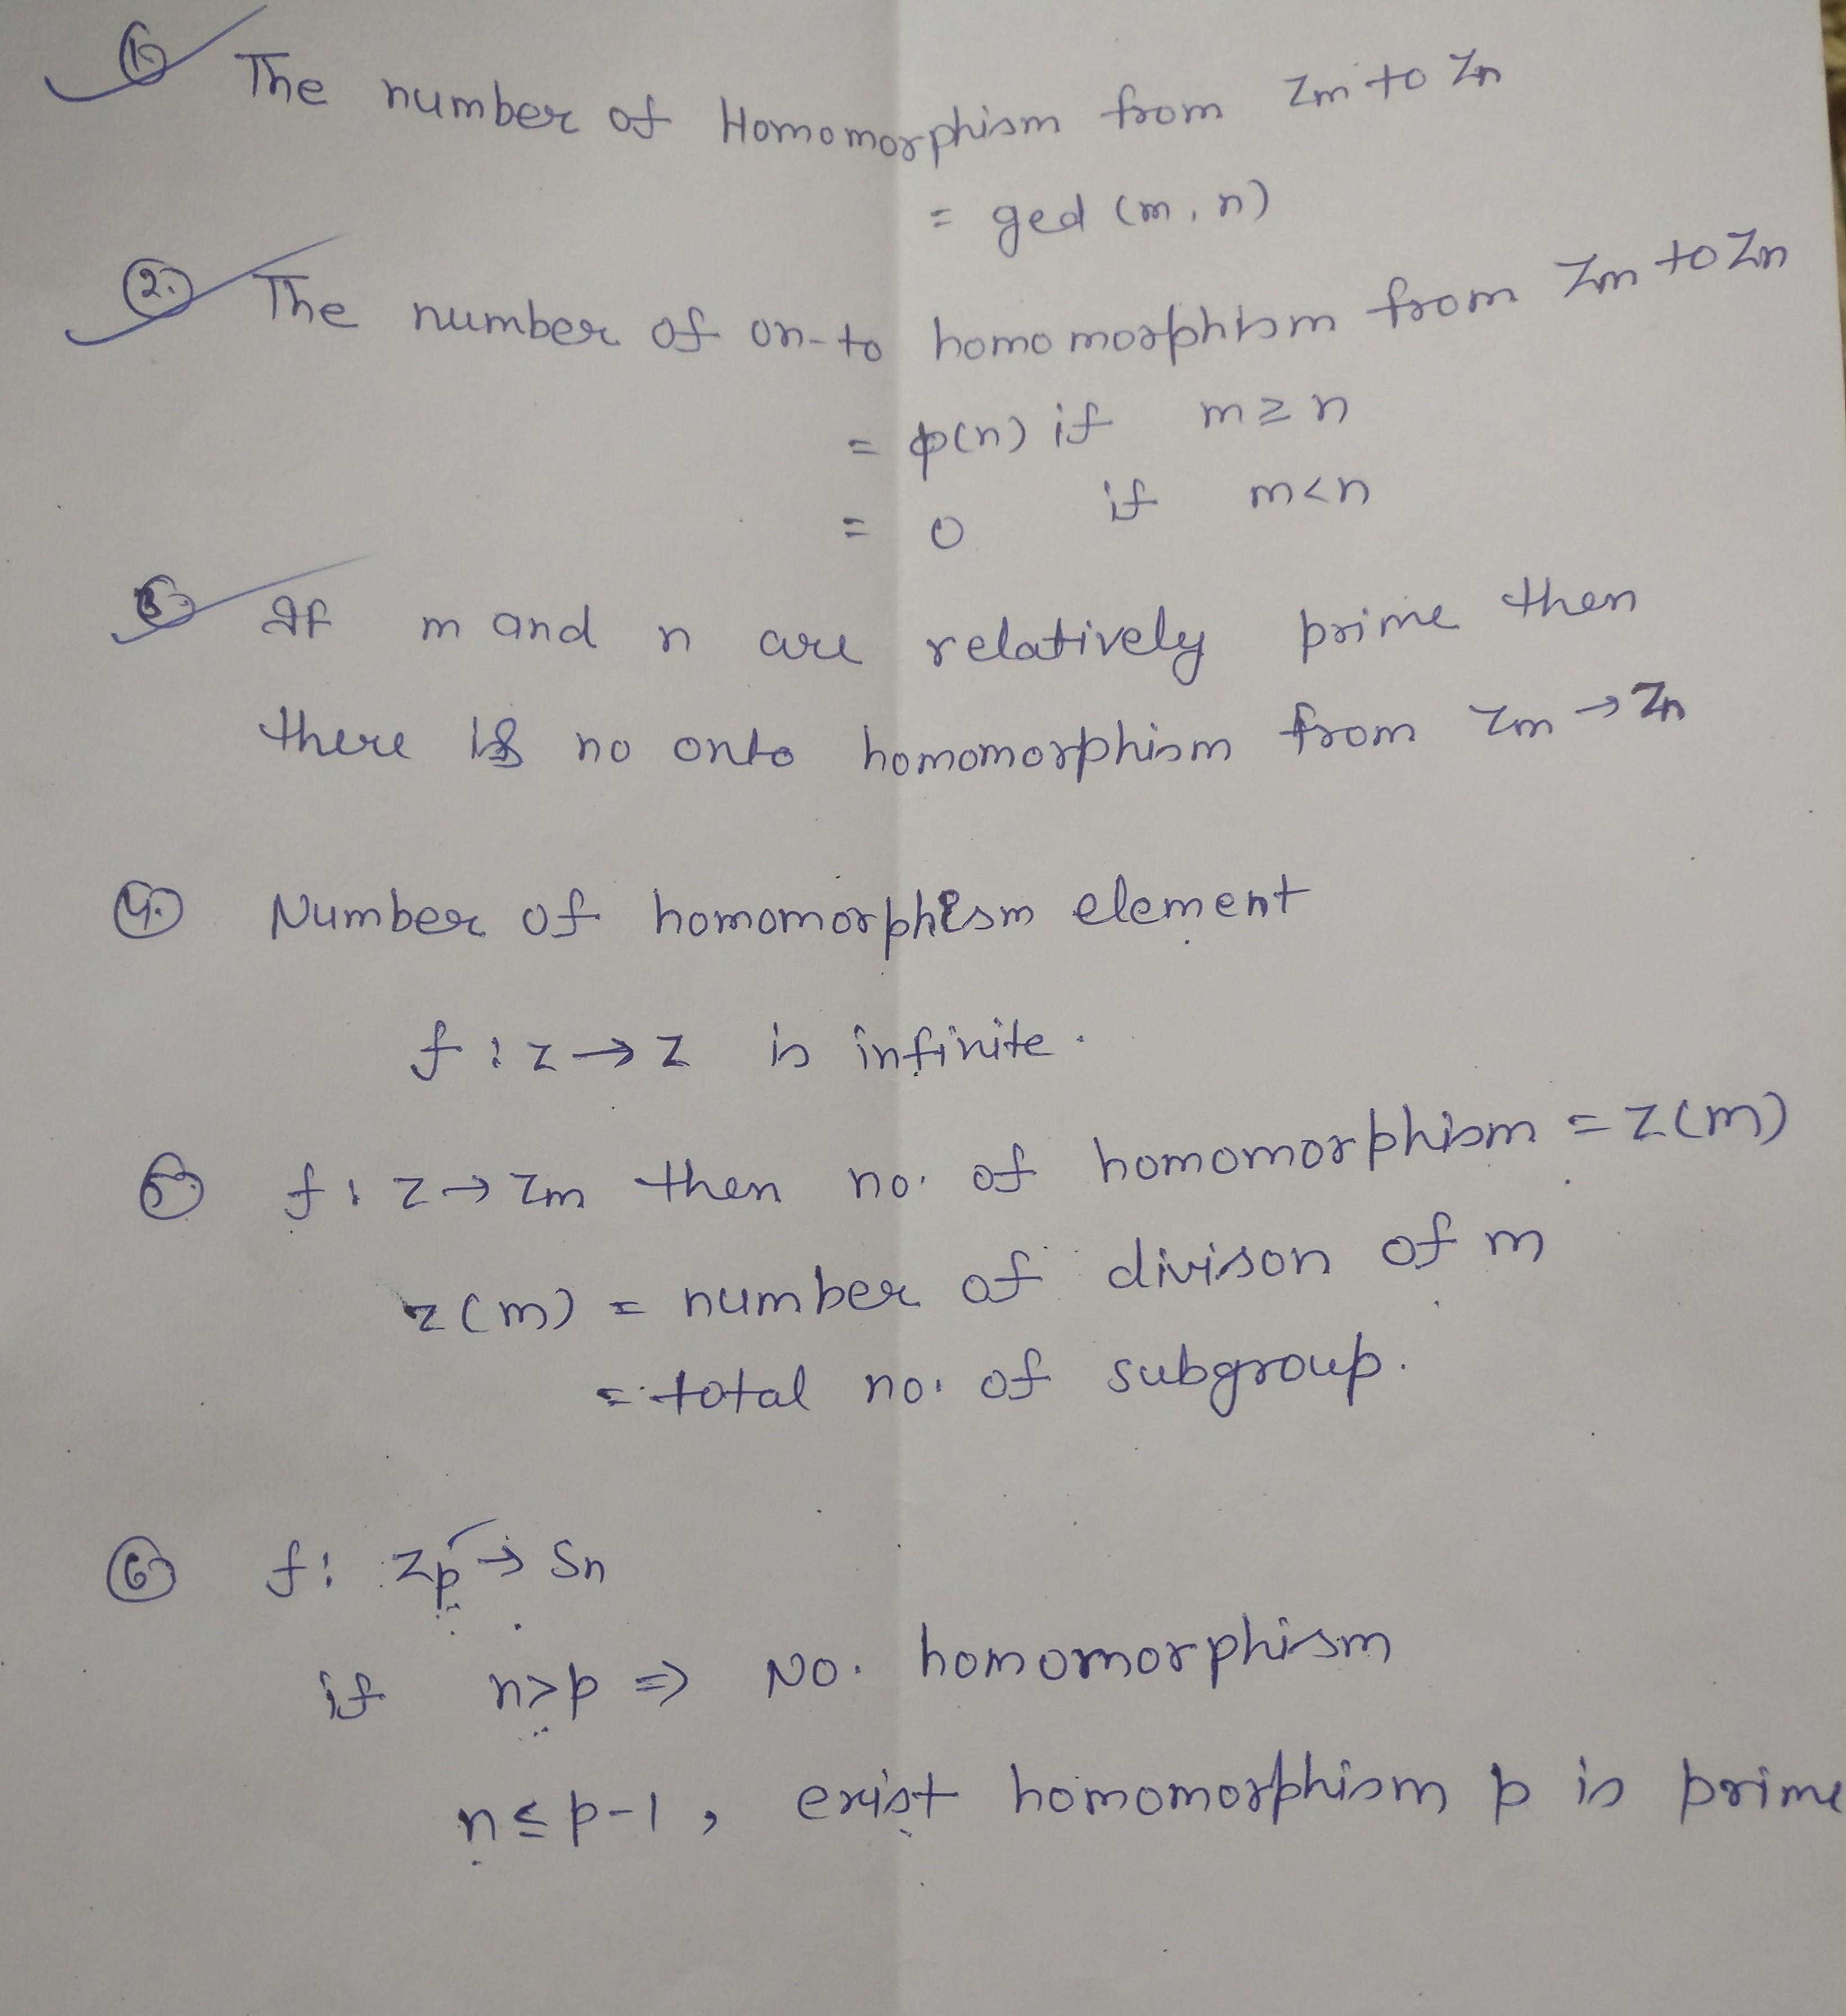 1. The number of Homomorphism from Zm to Zn
= gcd (m, n)
2. The number of on-to homomorphism from Zm to Zn
= ϕ(n) if m ≥ n
= 0 if m<n
3. If m and n are relatively prime then
there is no onto homomorphism from Zm → Zn
4. Number of homomorphism element
f : z → z is infinite.
5. f : z → zm then no. of homomorphism = z(m)
z(m) = number of divison of m
= total no. of subgroup.
6. f : zp → Sn
if n>p ⇒ No. homomorphism
n ≤ p-1, exist homomorphism p is prime